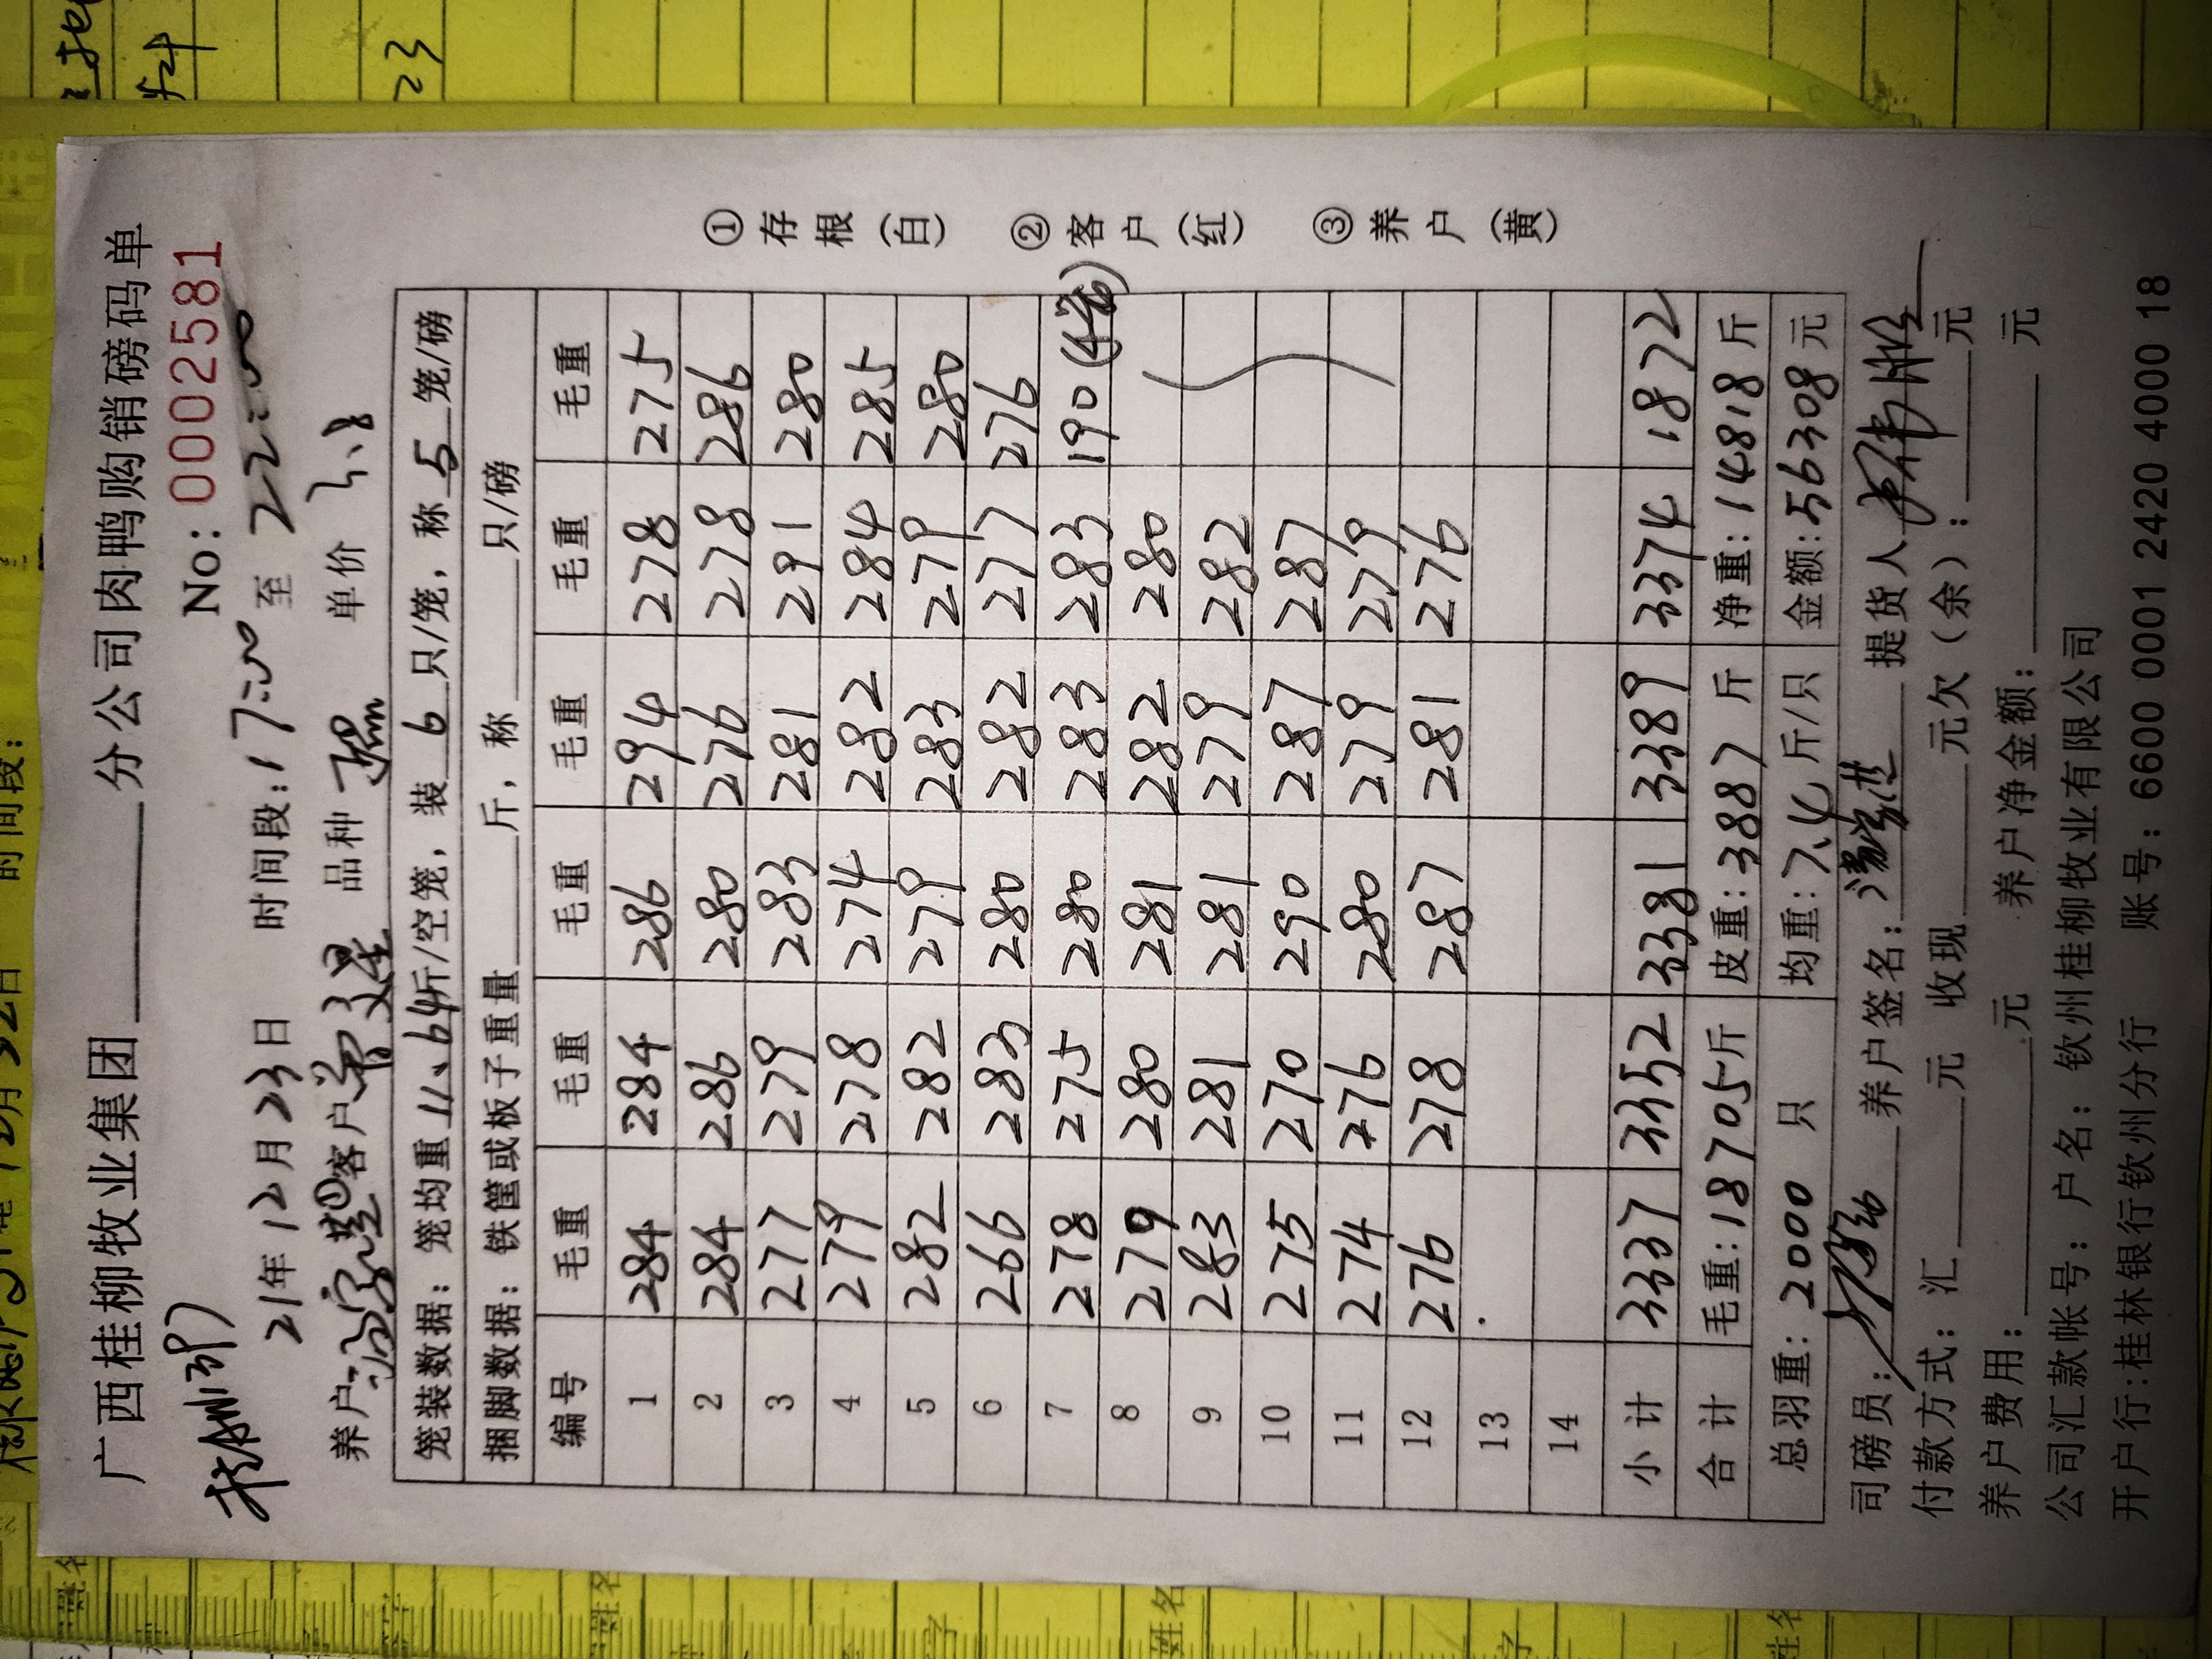 广西桂柳牧业集团____分公司肉鸭购销磅码单
No: 0002581
21年12月23日 时间段:17:00 至 22:00
养户 客户 品种 单价 3.8
笼装数据: 笼均重11.64斤/空笼, 装 6 只/笼, 称 5 笼/磅
捆脚数据: 铁筐或板子重量____斤, 称____只/磅
编号 毛重 毛重 毛重 毛重 毛重 毛重
1 284 284 286 294 278 275
2 284 286 280 276 278 286
3 277 279 283 281 291 280
4 279 278 274 282 284 285
5 282 282 279 283 279 280
6 266 283 280 282 277 276
7 278 275 280 283 283 190
8 279 280 281 282 280
9 283 281 281 279 282
10 275 270 290 287 287
11 274 276 280 279 279
12 276 278 287 281 276
13
14
小计 3337 3352 3381 3389 3374 1872
合计 毛重:18705斤 皮重:3887 斤 净重:14818斤
总羽重:2000 只 均重:7.4 斤/只 金额:56308元
司磅员: 养户签名: 提货人
付款方式: 汇____元 收现____元欠(余):____元
养户费用:____元 养户净金额:____元
公司汇款帐号: 户名: 钦州桂柳牧业有限公司
开户行:桂林银行钦州分行 账号: 6600 0001 2420 4000 18
①存根(白) ②客户(红) ③养户(黄)
23
时间段: